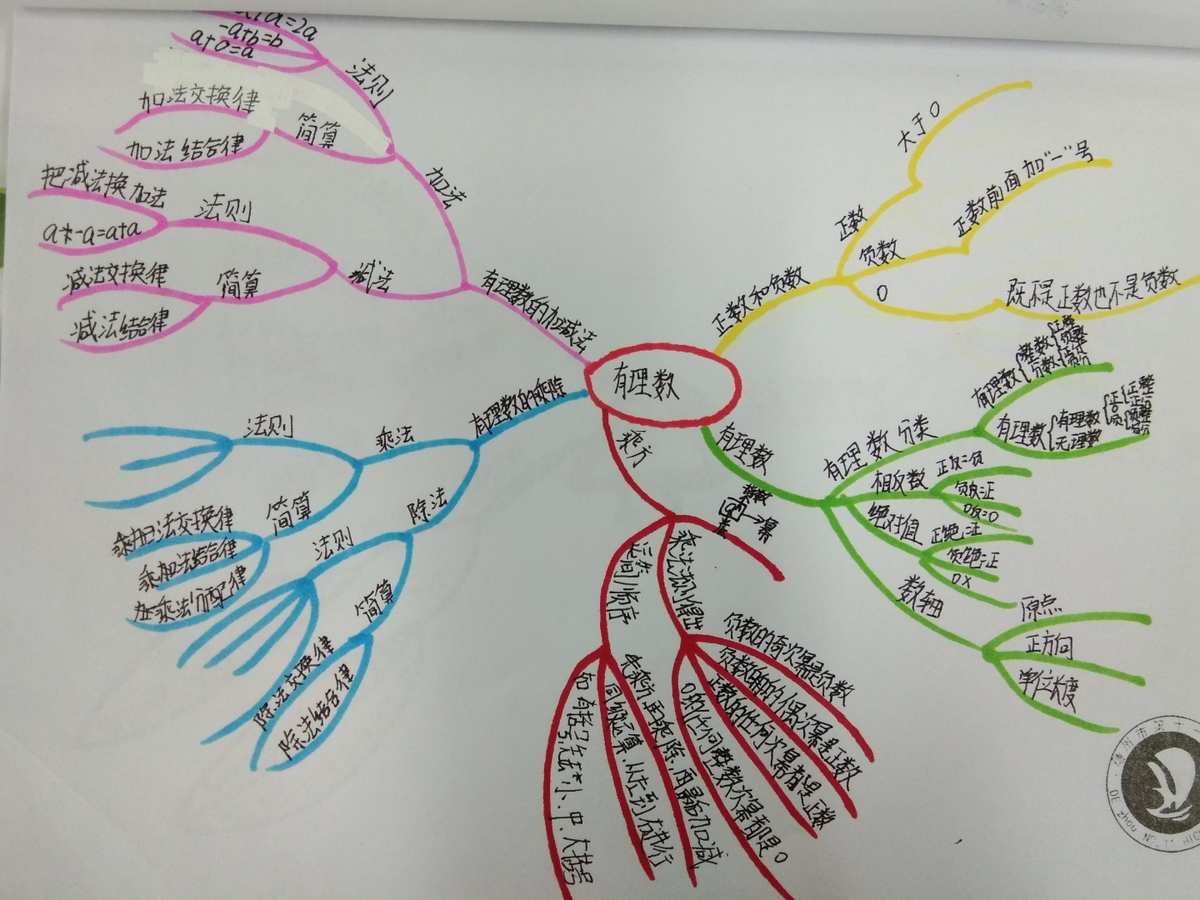 有理数
正数和负数
正数
大于0
负数
正数前面加"-"号
0
既不是正数也不是负数
有理数
有理数分类
有理数
整数
分数
有理数
有理数
无理数
相反数
正反=负
负反=正
0反=0
绝对值
正绝=正
负绝=正
数轴
原点
正方向
单位长度
乘方
指数
幂
乘法法则得出
负数的奇次幂是负数
负数的的偶次幂是正数
正数的任何次幂都是正数
0的任何整数次幂都是0
运算顺序
先乘方再乘除,而最后加减
同级运算,从左到右进行
如有括号先算小.中.大括号
有理数的乘除
乘法
法则
简算
乘法交换律
乘法结合律
乘法分配律
除法
法则
简算
除法交换律
除法结合律
有理数的加减法
加法
法则
a+a=2a
-a+b=b
a+0=a
简算
加法交换律
加法结合律
减法
法则
把减法换加法
a--a=a+a
简算
减法交换律
减法结合律